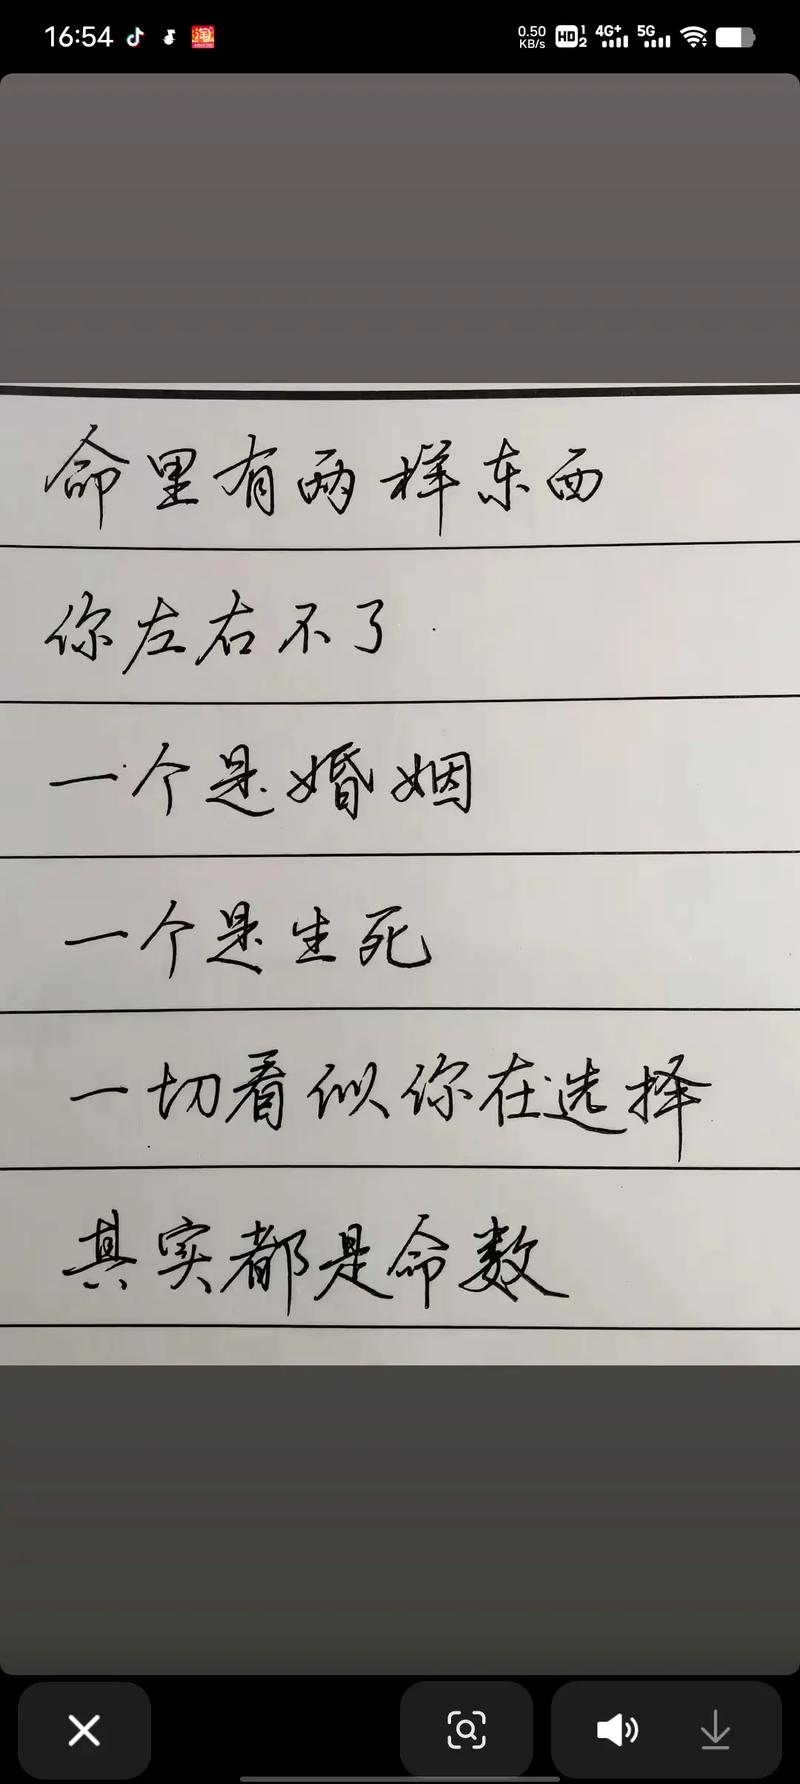 16:54
0.50 KB/s HD 1 2 4G+ 5G
命里有两样东西
你左右不了
一个是婚姻
一个是生死
一切看似你在选择
其实都是命数